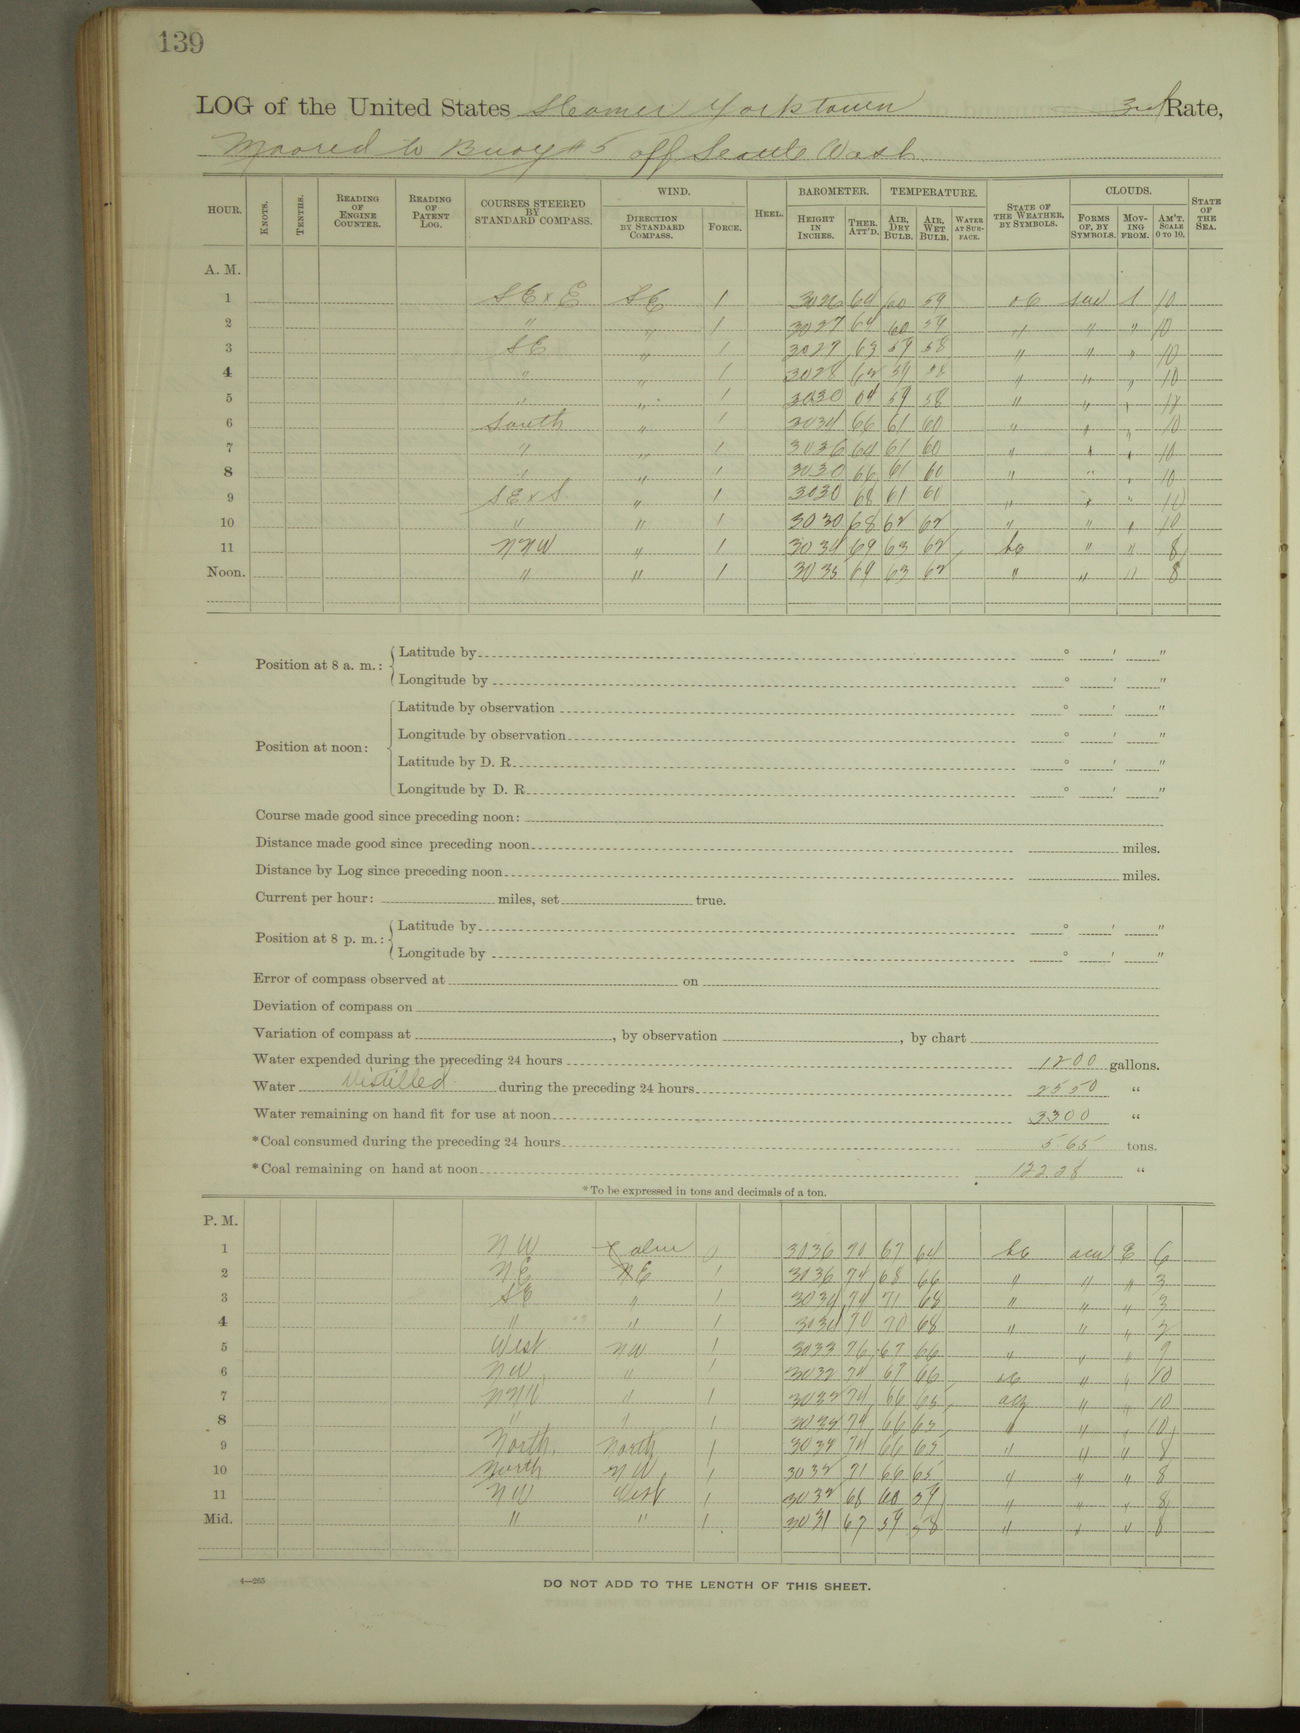 139
LOG of the United States Steamer Yorktown 3rd Rate,
Moored to Buoy #5 off Seattle Wash.
HOUR. KNOTS. TENTHS. READING OF ENGINE COUNTER. READING OF PATENT LOG. COURSES STEERED BY STANDARD COMPASS. WIND. DIRECTION BY STANDARD COMPASS. FORCE. HEEL. BAROMETER. HEIGHT IN INCHES. THER. ATT'D. TEMPERATURE. AIR, DRY BULB. AIR, WET BULB. WATER AT SURFACE. STATE OF THE WEATHER, BY SYMBOLS. CLOUDS. FORMS OF, BY SYMBOLS. MOVING FROM. AM'T. SCALE 0 TO 10. STATE OF THE SEA.
A. M.
1 SE x E SE 1 3026 64 60 59 oc S 10
2 " " 1 3027 64 60 59 " " " 10
3 SE " 1 3027 63 59 58 " " " 10
4 " " 1 3028 62 59 58 " " " 10
5 " " 1 3030 64 59 58 " " "
6 South " 1 66 61 60 " " " 10
7 " " 1 3036 64 61 60 " " " 10
8 " " 1 3030 66 61 60 " " 10
9 SE x S " 1 3030 68 61 60 " " " 10
10 " " 1 3030 68 62 62 " " " 10
11 NNW " 1 3034 69 63 62 bc " " 8
Noon. " " 1 3035 69 63 62 " " " 8
Position at 8 a. m.: Latitude by ° ' "
Longitude by ° ' "
Position at noon: Latitude by observation ° ' "
Longitude by observation ° ' "
Latitude by D. R. ° ' "
Longitude by D. R. ° ' "
Course made good since preceding noon:
Distance made good since preceding noon miles.
Distance by Log since preceding noon miles.
Current per hour: miles, set true.
Position at 8 p. m.: Latitude by ° ' "
Longitude by ° ' "
Error of compass observed at on
Deviation of compass on
Variation of compass at , by observation , by chart
Water expended during the preceding 24 hours 1200 gallons.
Water Distilled during the preceding 24 hours 2550 "
Water remaining on hand fit for use at noon 3300 "
*Coal consumed during the preceding 24 hours 5.65 tons.
*Coal remaining on hand at noon 122.28 "
*To be expressed in tons and decimals of a ton.
P. M.
1 NW Calm 0 3036 70 67 64 bc acu E 6
2 NE NE 1 3036 74 68 66 " " " 3
3 SE " 1 3034 74 71 68 " " " 3
4 " " 1 3034 70 70 68 " " "
5 West NW 1 3033 76 67 66 " " " 9
6 NW " 1 3032 74 67 66 oc " " 10
7 NNW " 1 3032 74 66 65 " " 10
8 " " 1 3032 74 66 65 " " " 10
9 North North 1 3032 74 66 65 " " " 8
10 North NW 1 3032 71 66 65 " " " 8
11 NW West 1 3032 68 60 59 " " " 8
Mid. " " 1 3031 67 59 58 " " " 8
4—265
DO NOT ADD TO THE LENGTH OF THIS SHEET.